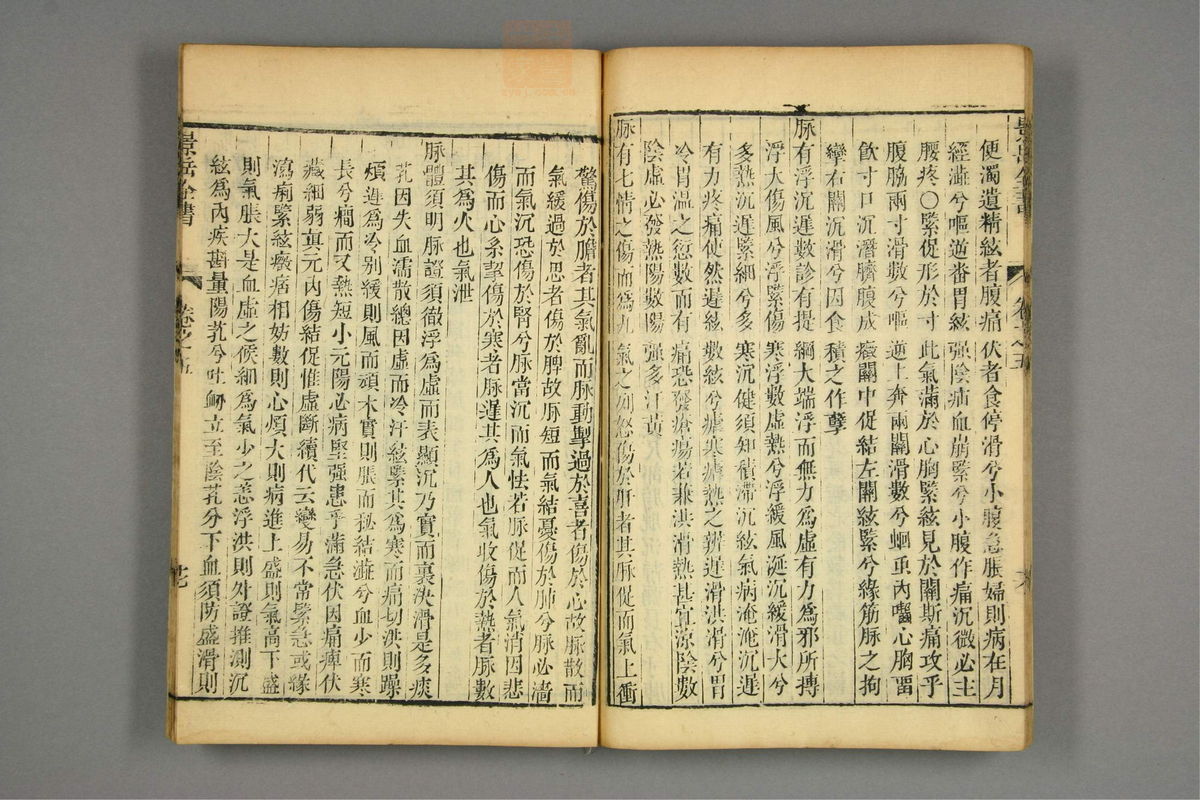 便濁遺精絃者腹痛伏者食停滑兮小腹急脹婦則病在月
經澁兮嘔逆番胃絃强陰疝血崩緊兮小腹作痛沉微必主
腰疼〇緊促形於寸此氣滿於心胸緊絃見於關斯痛攻乎
腹脇兩寸滑數兮嘔逆上奔兩關滑數兮蛔重內囓心胸留
飲寸口沉潛臍腹成癥關中促結左關絃緊兮緣筋脉之拘
攣右關沉滑兮因食積之作孽
脉有浮沉遲數診有提綱大端浮而無力為虛有力為邪所搏
浮大傷風兮浮緊傷寒浮數虛熱兮浮緩風涎沉緩滑大兮
多熱沉遲緊細兮多寒沉健須知積滯沉絃氣病淹淹沉遲
有力疼痛使然遲絃數絃兮瘧寒瘧熱之辨遲滑洪滑兮胃
冷胃溫之愆數而有痛恐發瘡瘍若兼洪滑熱甚宜凉陰數
陰虛必發熱陽數陽强多汗黃
脉有七情之傷而為九氣之列怒傷於肝者其脉促而氣上衝
驚傷於膽者其氣亂而脉動掣過於喜者傷於心故脉散而
氣緩過於思者傷於脾故脉短而氣結憂傷於肺兮脉必濇
而氣沉恐傷於腎兮脉當沉而氣怯若脉促而人氣消因悲
傷而心系掣傷於寒者脉遲其為人也氣收傷於熱者脉數
其為人也氣泄
脉體須明脉證須徹浮為虛而表顯沉乃實而裏決滑是多痰
芤因失血濡散總因虛而冷汗絃緊其為寒而痛切洪則躁
煩遲為冷別緩則風而頑木實則脹而秘結澁兮血少而寒
長兮癇而又熱短小元陽必病堅强患乎滿急伏因痛痺伏
藏細弱真元內傷結促惟虛斷續代云變易不常緊急或緣
瀉痢緊絃癥痞相妨數則心煩大則病進上盛則氣高下盛
則氣脹大是血虛之候細為氣少之恙浮洪則外證推測沉
絃為內疾斟量陽芤兮吐衂立至陰芤分下血須防盛滑則
景岳全書
卷之五
廿七